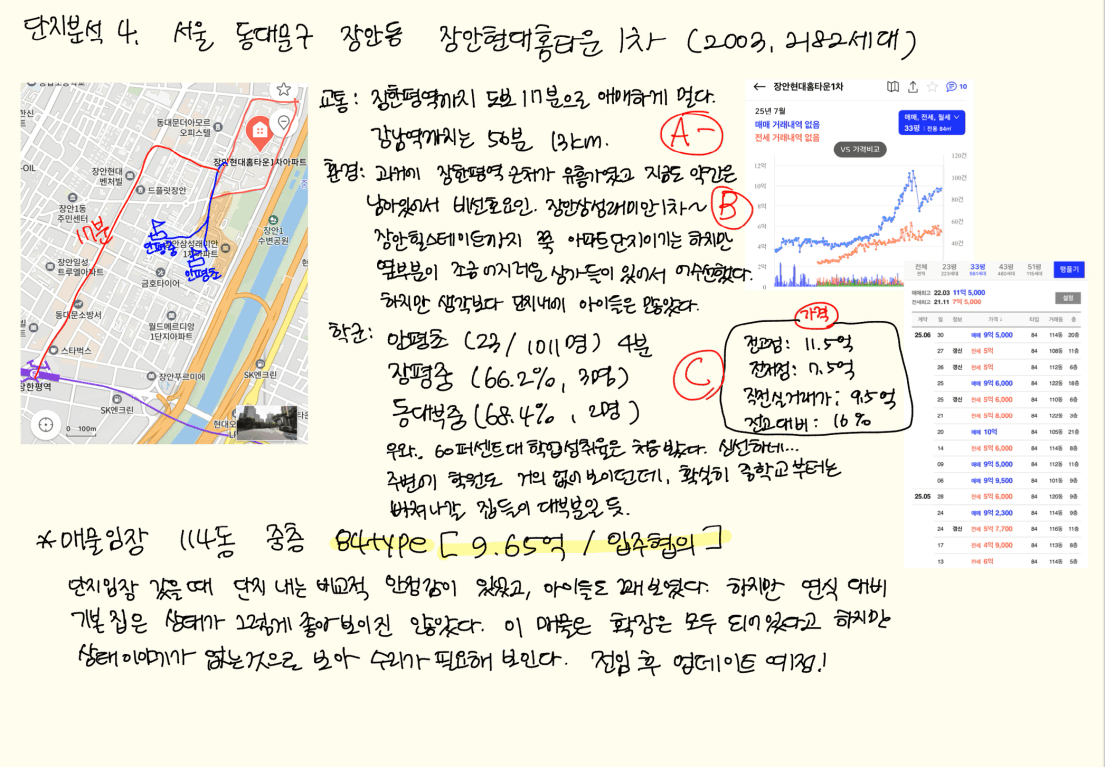 단지분석 4. 서울 동대문구 장안동 장안현대홈타운 1차 (2003, 2182세대)
동대문더아모르
오피스텔
장안현대홈타운1차아파트
장안현대
벤처빌
드플릿장안
장안1동
주민센터
17분
안평중
안평초
장안1
수변공원
-OIL
장안일성
트루엘아파트
금호타이어
동대문소방서
월드메르디앙
1단지아파트
스타벅스
장안푸르미에
SK엔크린
장한평역
SK엔크린
0 100m
교통: 장한평역까지 도보 17분으로 애매하게 멀다.
강남역까지는 50분 13km.
A-
환경: 과거에 장한평역 근처가 유흥가였고 지금도 약간은
남아있어서 비선호요인. 장안삼성래미안1차~
B
장안힐스테이트까지 쭉 아파트단지이기는 하지만
옆부분이 조금 어지러운 상가들이 있어서 어수선했다.
하지만 생각보다 단지내에 아이들은 많았다.
학군: 안평초 (23/1011명) 4분
장평중 (66.2%, 3명)
동대부중 (68.4%, 2명)
C
우와.. 60퍼센트대 학업성취율은 처음봤다. 신선하네...
주변에 학원도 거의 없어보이던데, 확실히 중학교부터는
벗어나갈 집들이 대부분일 듯.
장안현대홈타운1차
10
25년 7월
매매 거래내역 없음
전세 거래내역 없음
매매, 전세, 월세
33평 전용 84㎡
VS 가격비교
12억
10억
8억
6억
4억
2억
120건
100건
80건
60건
40건
전체 23평 33평 43평 51평
평풀기
매매최고 22.03 11억 5,000
전세최고 21.11 7억 5,000
설정
계약 일 정보 가격 타입 거래동 층
25.06 30 매매 9억 5,000 84 114동 20층
27 갱신 전세 5억 84 108동 11층
26 갱신 전세 5억 84 112동 6층
25 매매 9억 6,000 84 122동 18층
25 갱신 전세 5억 6,000 84 110동 6층
21 전세 5억 8,000 84 122동 3층
20 매매 10억 84 105동 21층
14 전세 5억 6,000 84 114동 8층
09 매매 9억 5,000 84 112동 11층
06 매매 9억 9,500 84 101동 9층
25.05 28 전세 5억 6,000 84 120동 9층
24 매매 9억 2,300 84 114동 9층
24 갱신 전세 5억 7,700 84 116동 11층
17 전세 4억 9,000 84 113동 8층
13 전세 6억 84 114동 5층
가격
전고점: 11.5억
전저점: 7.5억
직전실거래가: 9.5억
전고대비: 16%
*매물임장 114동 중층 84type [9.65억 / 입주협의]
단지임장 갔을때 단지 내는 비교적 안정감이 있었고, 아이들도 꽤 보였다. 하지만 연식 대비
기본집은 상태가 그렇게 좋아보이진 않았다. 이 매물은 확장은 모두 되어있다고 하지만
상태이야기가 없는것으로 보아 수리가 필요해 보인다. 전임 후 업데이트 예정!